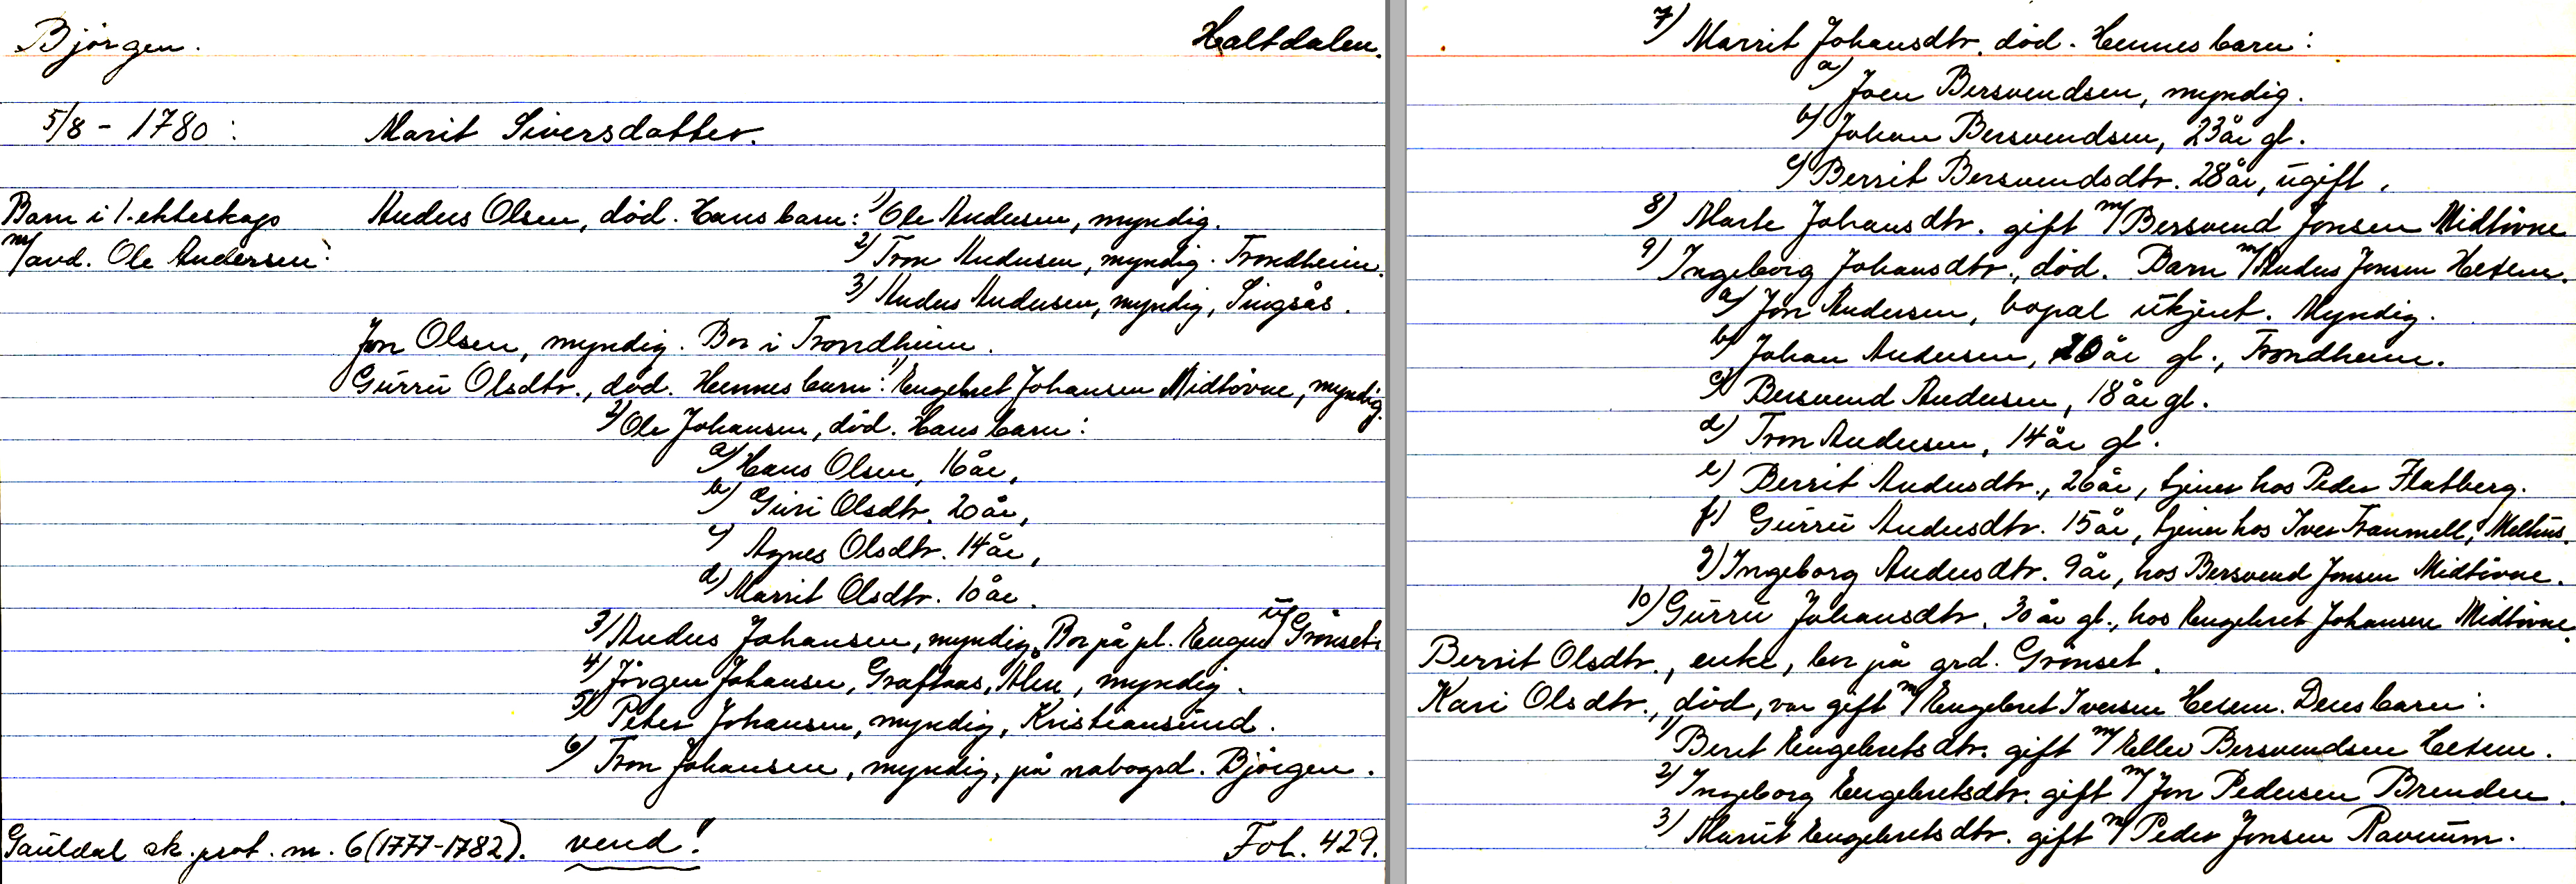 Bjørgen. Haltdalen.
5/8 - 1780: Marit Siversdatter.
Barn i 1. ekteskap Anders Olsen, död. Hans barn: 1) Ole Andersen, myndig.
m/avd. Ole Andersen: 2) Tron Andersen, myndig. Trondheim.
3) Anders Andersen, myndig, Singsås.
Jon Olsen, myndig. Bor i Trondheim.
Gurru Olsdtr., död. Hennes barn: 1) Engebret Johansen Midtövne, myndig.
2) Ole Johansen, död. Hans barn:
a) Hans Olsen, 16 år,
b) Guri Olsdtr. 20 år,
c) Agnes Olsdtr. 14 år,
d) Marrit Olsdtr. 10 år.
3) Anders Johansen, myndig, Bor på pl. u/ Grönset.
4) Jörgen Johansen, Graftaas, Ålen, myndig.
5) Peter Johansen, myndig, Kristiansund.
6) Tron Johansen, myndig, på nabogrd. Björgen.
Gauldal sk. prot. nr. 6 (1777-1782). vend! Fol. 429.
7) Marrit Johansdtr. död. Hennes barn:
a) Joen Bersvendsen, myndig.
b) Johan Bersvendsen, 23 år gl.
c) Berrit Bersvendsdtr. 28 år, ugift.
8) Marte Johansdtr. gift m/ Bersvend Jonsen Midtövne
9) Ingeborg Johansdtr., död. Barn m/ Anders Jonsen Hexem.
a) Jon Andersen, bopæl ukjent. Myndig.
b) Johan Andersen, 20 år gl., Trondheim.
c) Bersvend Andersen, 18 år gl.
d) Tron Andersen, 14 år gl.
e) Berrit Andersdtr., 26 år, tjener hos Peder Flatberg.
f) Gurru Andersdtr. 15 år, tjener hos Iver Tranmell, Melhus.
g) Ingeborg Andersdtr. 9 år, hos Bersvend Jonsen Midtövne.
10) Gurru Johansdtr. 30 år gl., hos Engebret Johansen Midtövne.
Berrit Olsdtr., enke, bor på grd. Grönset.
Kari Olsdtr., död, var gift m/ Engebret Iversen Hexem. Deres barn:
1) Berit Engebretsdtr. gift m/ Ellev Bersvendsen Hexem.
2) Ingeborg Engebretsdtr. gift m/ Jon Pedersen Brenden.
3) Marit Engebretsdtr. gift m/ Peder Jonsen Ramlum.